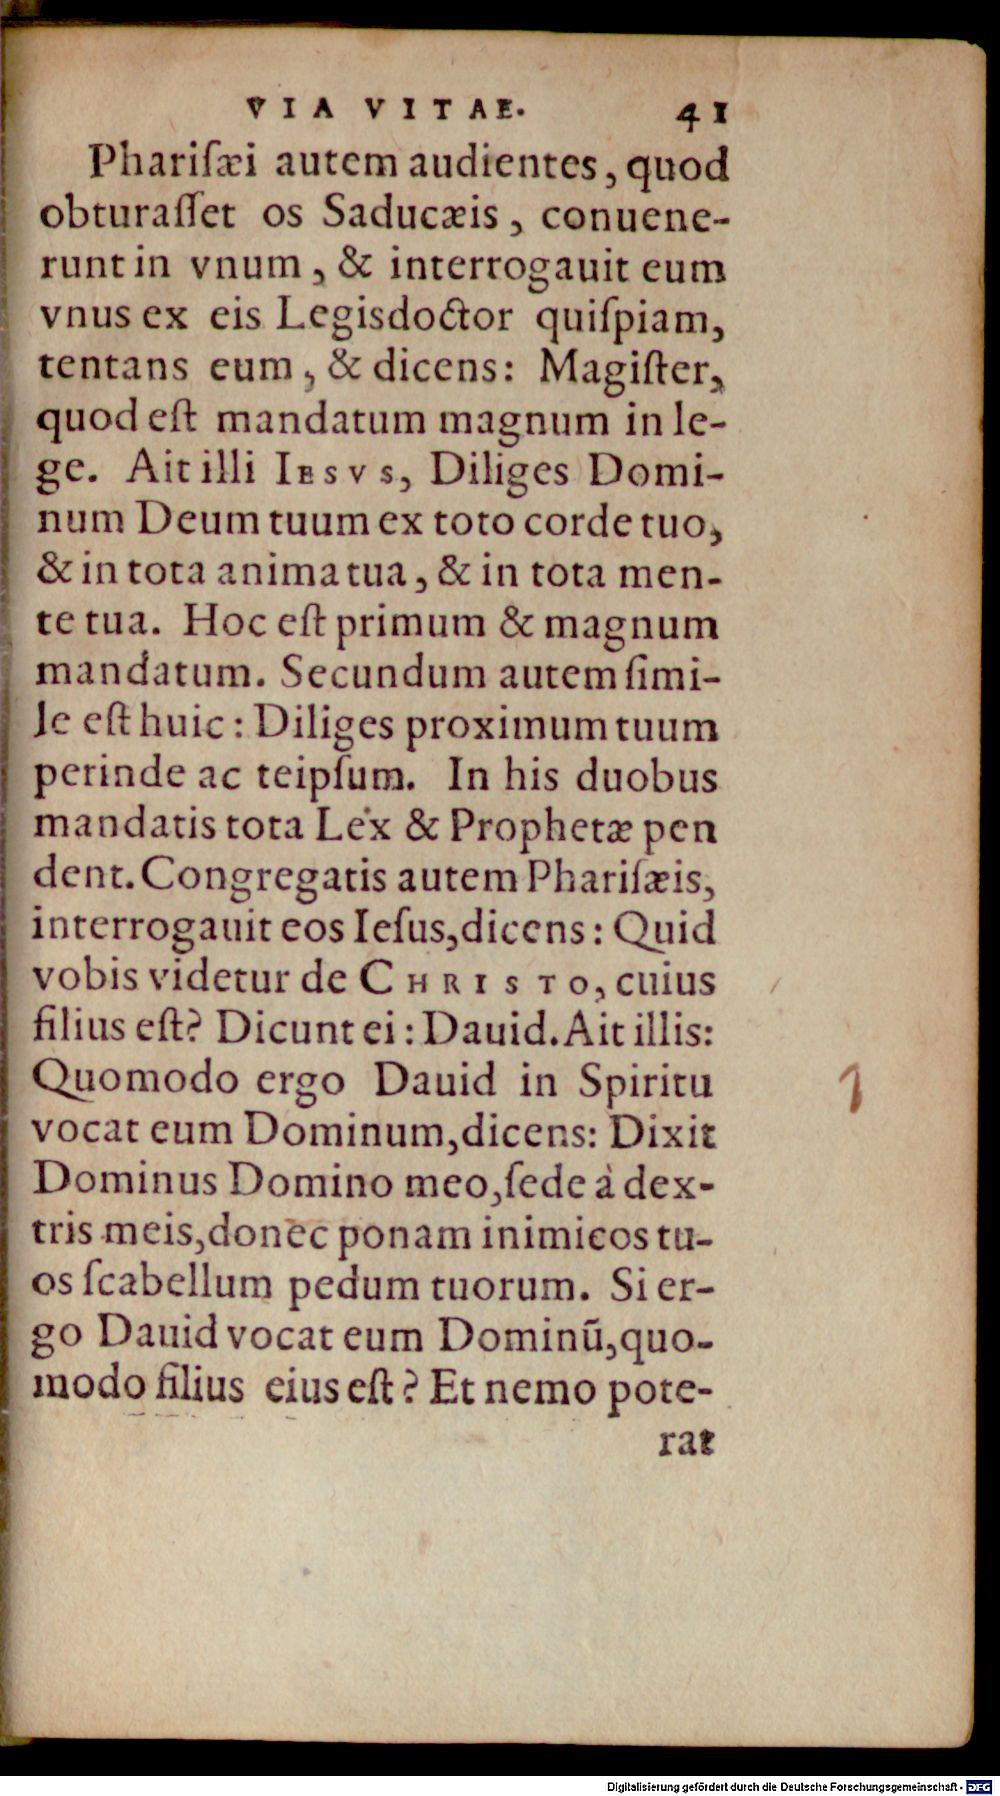 VIA VITAE. 41
Phariſæi autem audientes, quod
obturaſſet os Saducæis, conuene-
runt in vnum, & interrogauit eum
vnus ex eis Legisdoctor quiſpiam,
tentans eum, & dicens: Magiſter,
quod eſt mandatum magnum in le-
ge. Ait illi IESVS, Diliges Domi-
num Deum tuum ex toto corde tuo,
& in tota anima tua, & in tota men-
te tua. Hoc eſt primum & magnum
mandatum. Secundum autem ſimi-
le eſt huic: Diliges proximum tuum
perinde ac teipſum. In his duobus
mandatis tota Lex & Prophetæ pen
dent. Congregatis autem Phariſæis,
interrogauit eos Ieſus, dicens: Quid
vobis videtur de CHRISTO, cuius
filius eſt? Dicunt ei: Dauid. Ait illis:
Quomodo ergo Dauid in Spiritu
vocat eum Dominum, dicens: Dixit
Dominus Domino meo, ſede à dex-
tris meis, donec ponam inimicos tu-
os ſcabellum pedum tuorum. Si er-
go Dauid vocat eum Dominũ, quo-
modo filius eius eſt? Et nemo pote-
rat
Digitalisierung gefördert durch die Deutsche Forschungsgemeinschaft - DFG